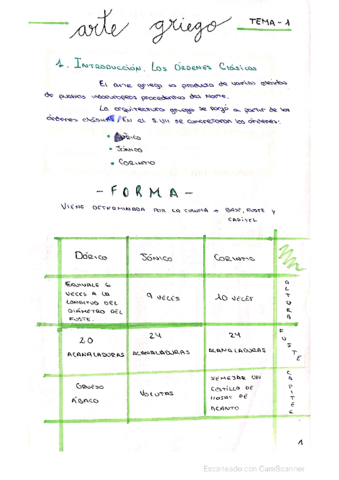 arte griego
TEMA-1
1. INTRODUCCIÓN. LOS ÓRDENES CLÁSICOS
El arte griego es producto de varias
de pueblos indoeuropeos procedentes del Norte.
La arquitectura griega se forjó a partir de los
órdenes clásicos / En el S.VII se concretaron los órdenes:
• DÓRICO
• JÓNICO
• CORINTIO
- FORMA -
VIENE DETERMINADA POR LA COLUMNA → BASE, FUSTE Y
CAPITEL
DÓRICO JÓNICO CORINTIO
EQUIVALE 6
VECES A LA
LONGITUD DEL
DIÁMETRO DEL
FUSTE.
9 VECES
10 VECES
ALTURA
20
ACANALADURAS
24
ACANALADURAS
24
ACANALADURAS
FUSTE
GRUESO
ÁBACO
VOLUTAS
SEMEJAR UN
CESTILLO DE
HOJAS DE
ACANTO
CAPITEL
1
Escaneado con CamScanner